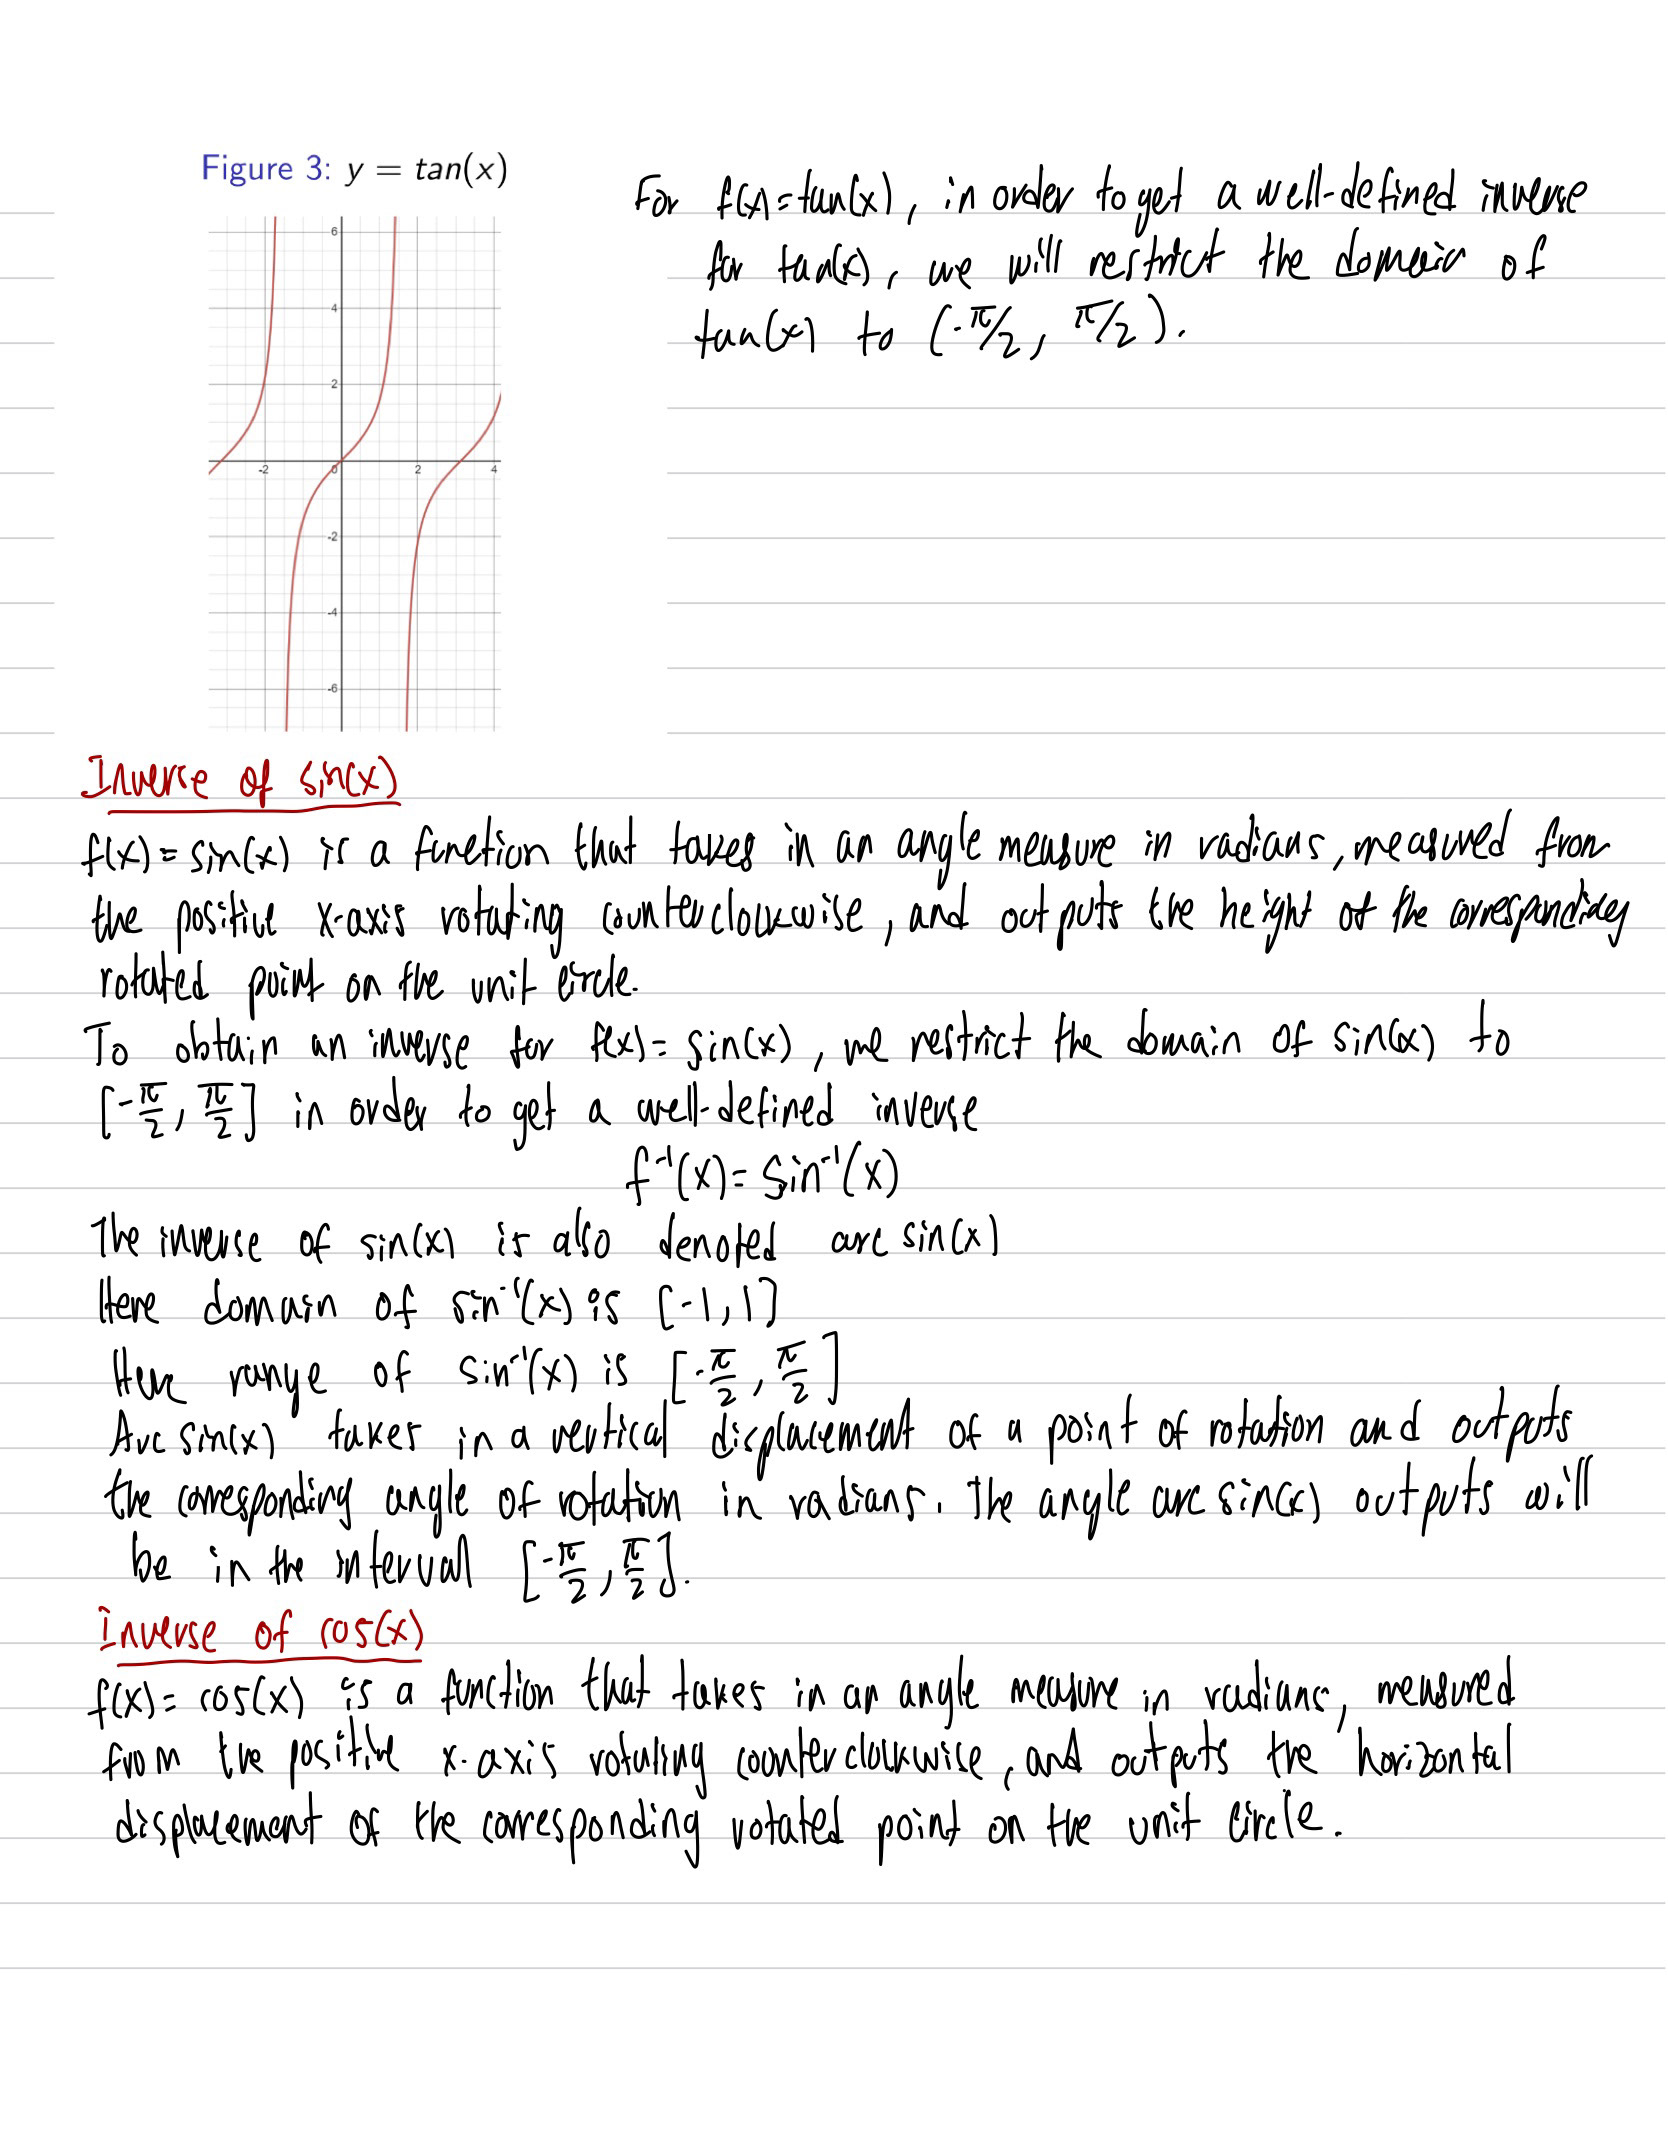 Figure 3: y = tan(x)
For f(x)=tan(x), in order to get a well-defined inverse
for tan(x), we will restrict the domain of
tan(x) to (-π/2, π/2).
6
4
2
-2
0
2
4
-2
-4
-6
Inverse of sin(x)
f(x)=sin(x) is a function that takes in an angle measure in radians, measured from
the positive x-axis rotating counterclockwise, and outputs the height of the corresponding
rotated point on the unit circle.
To obtain an inverse for f(x)=sin(x), we restrict the domain of sin(x) to
[-π/2, π/2] in order to get a well-defined inverse
f⁻¹(x)=sin⁻¹(x)
The inverse of sin(x) is also denoted arcsin(x)
Here domain of sin⁻¹(x) is [-1,1]
Here range of sin⁻¹(x) is [-π/2, π/2]
Arcsin(x) takes in a vertical displacement of a point of rotation and outputs
the corresponding angle of rotation in radians. The angle arcsin(x) outputs will
be in the interval [-π/2, π/2].
Inverse of cos(x)
f(x)=cos(x) is a function that takes in an angle measure in radians, measured
from the positive x-axis rotating counterclockwise, and outputs the horizontal
displacement of the corresponding rotated point on the unit circle.